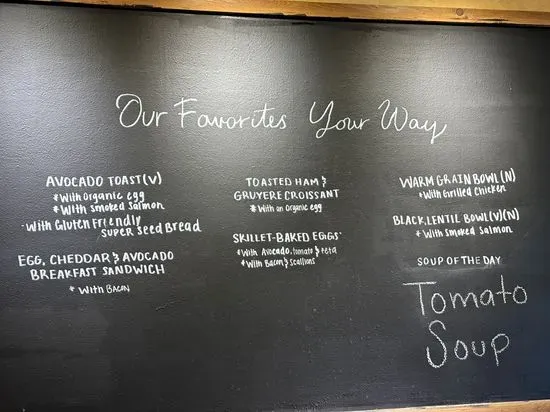 Our Favorites Your Way
AVOCADO TOAST(V)
*With Organic egg
*With Smoked Salmon
*With Gluten Friendly
Super Seed Bread
EGG, CHEDDAR & AVOCADO
BREAKFAST SANDWICH
* With BACON
TOASTED HAM &
GRUYERE CROISSANT
* With an Organic egg
SKILLET-BAKED EGGS
*With Avocado, tomato & Feta
*With Bacon & Scallions
WARM GRAIN BOWL (N)
*With Grilled Chicken
BLACK LENTIL BOWL(V)(N)
*With Smoked Salmon
SOUP OF THE DAY
Tomato
Soup